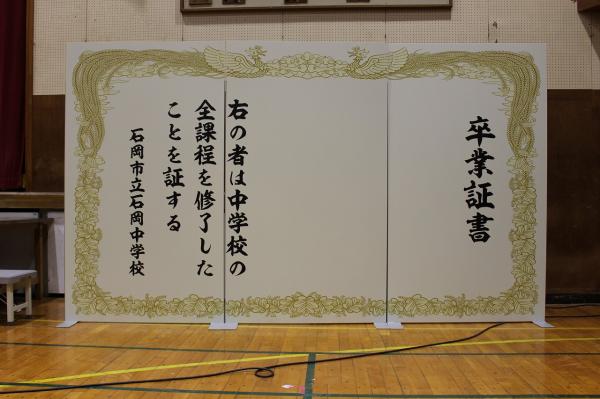 卒業証書
右の者は中学校の
全課程を修了した
ことを証する
石岡市立石岡中学校